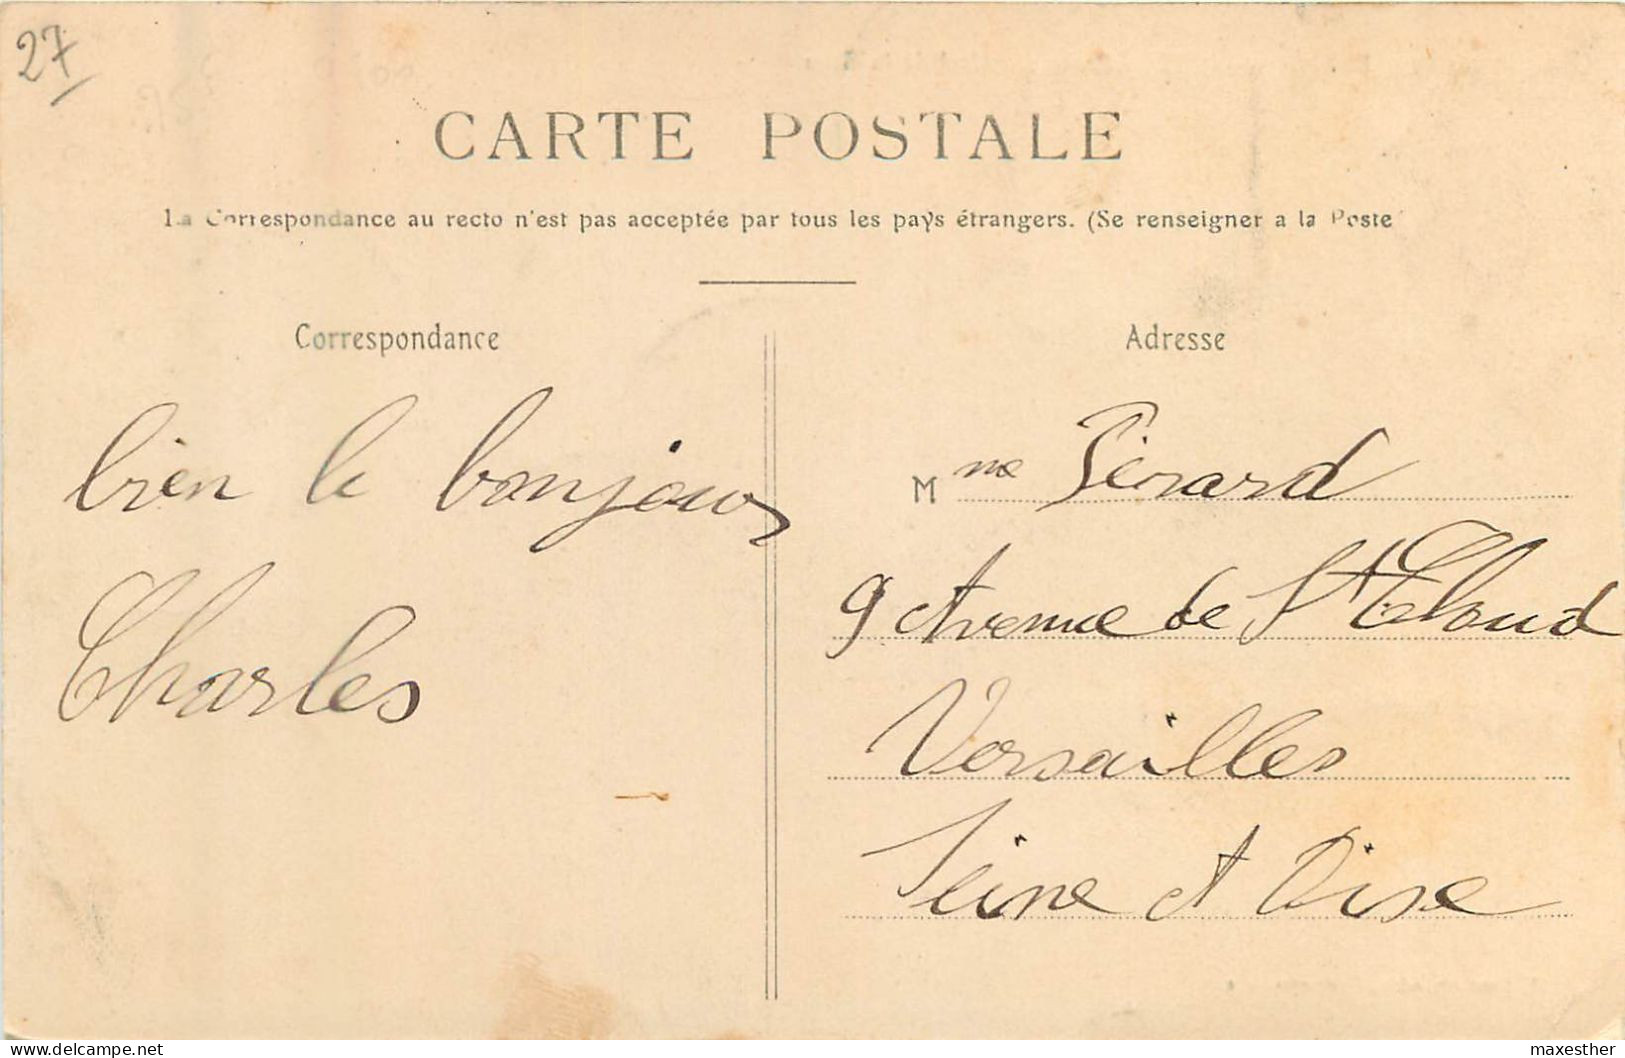 27
CARTE POSTALE
La Correspondance au recto n'est pas acceptée par tous les pays étrangers. (Se renseigner a la Poste
Correspondance
bien le bonjour
Charles
Adresse
Mme Pérard
9 Avenue de St Cloud
Versailles
Seine et Oise
www.delcampe.net
maxesther